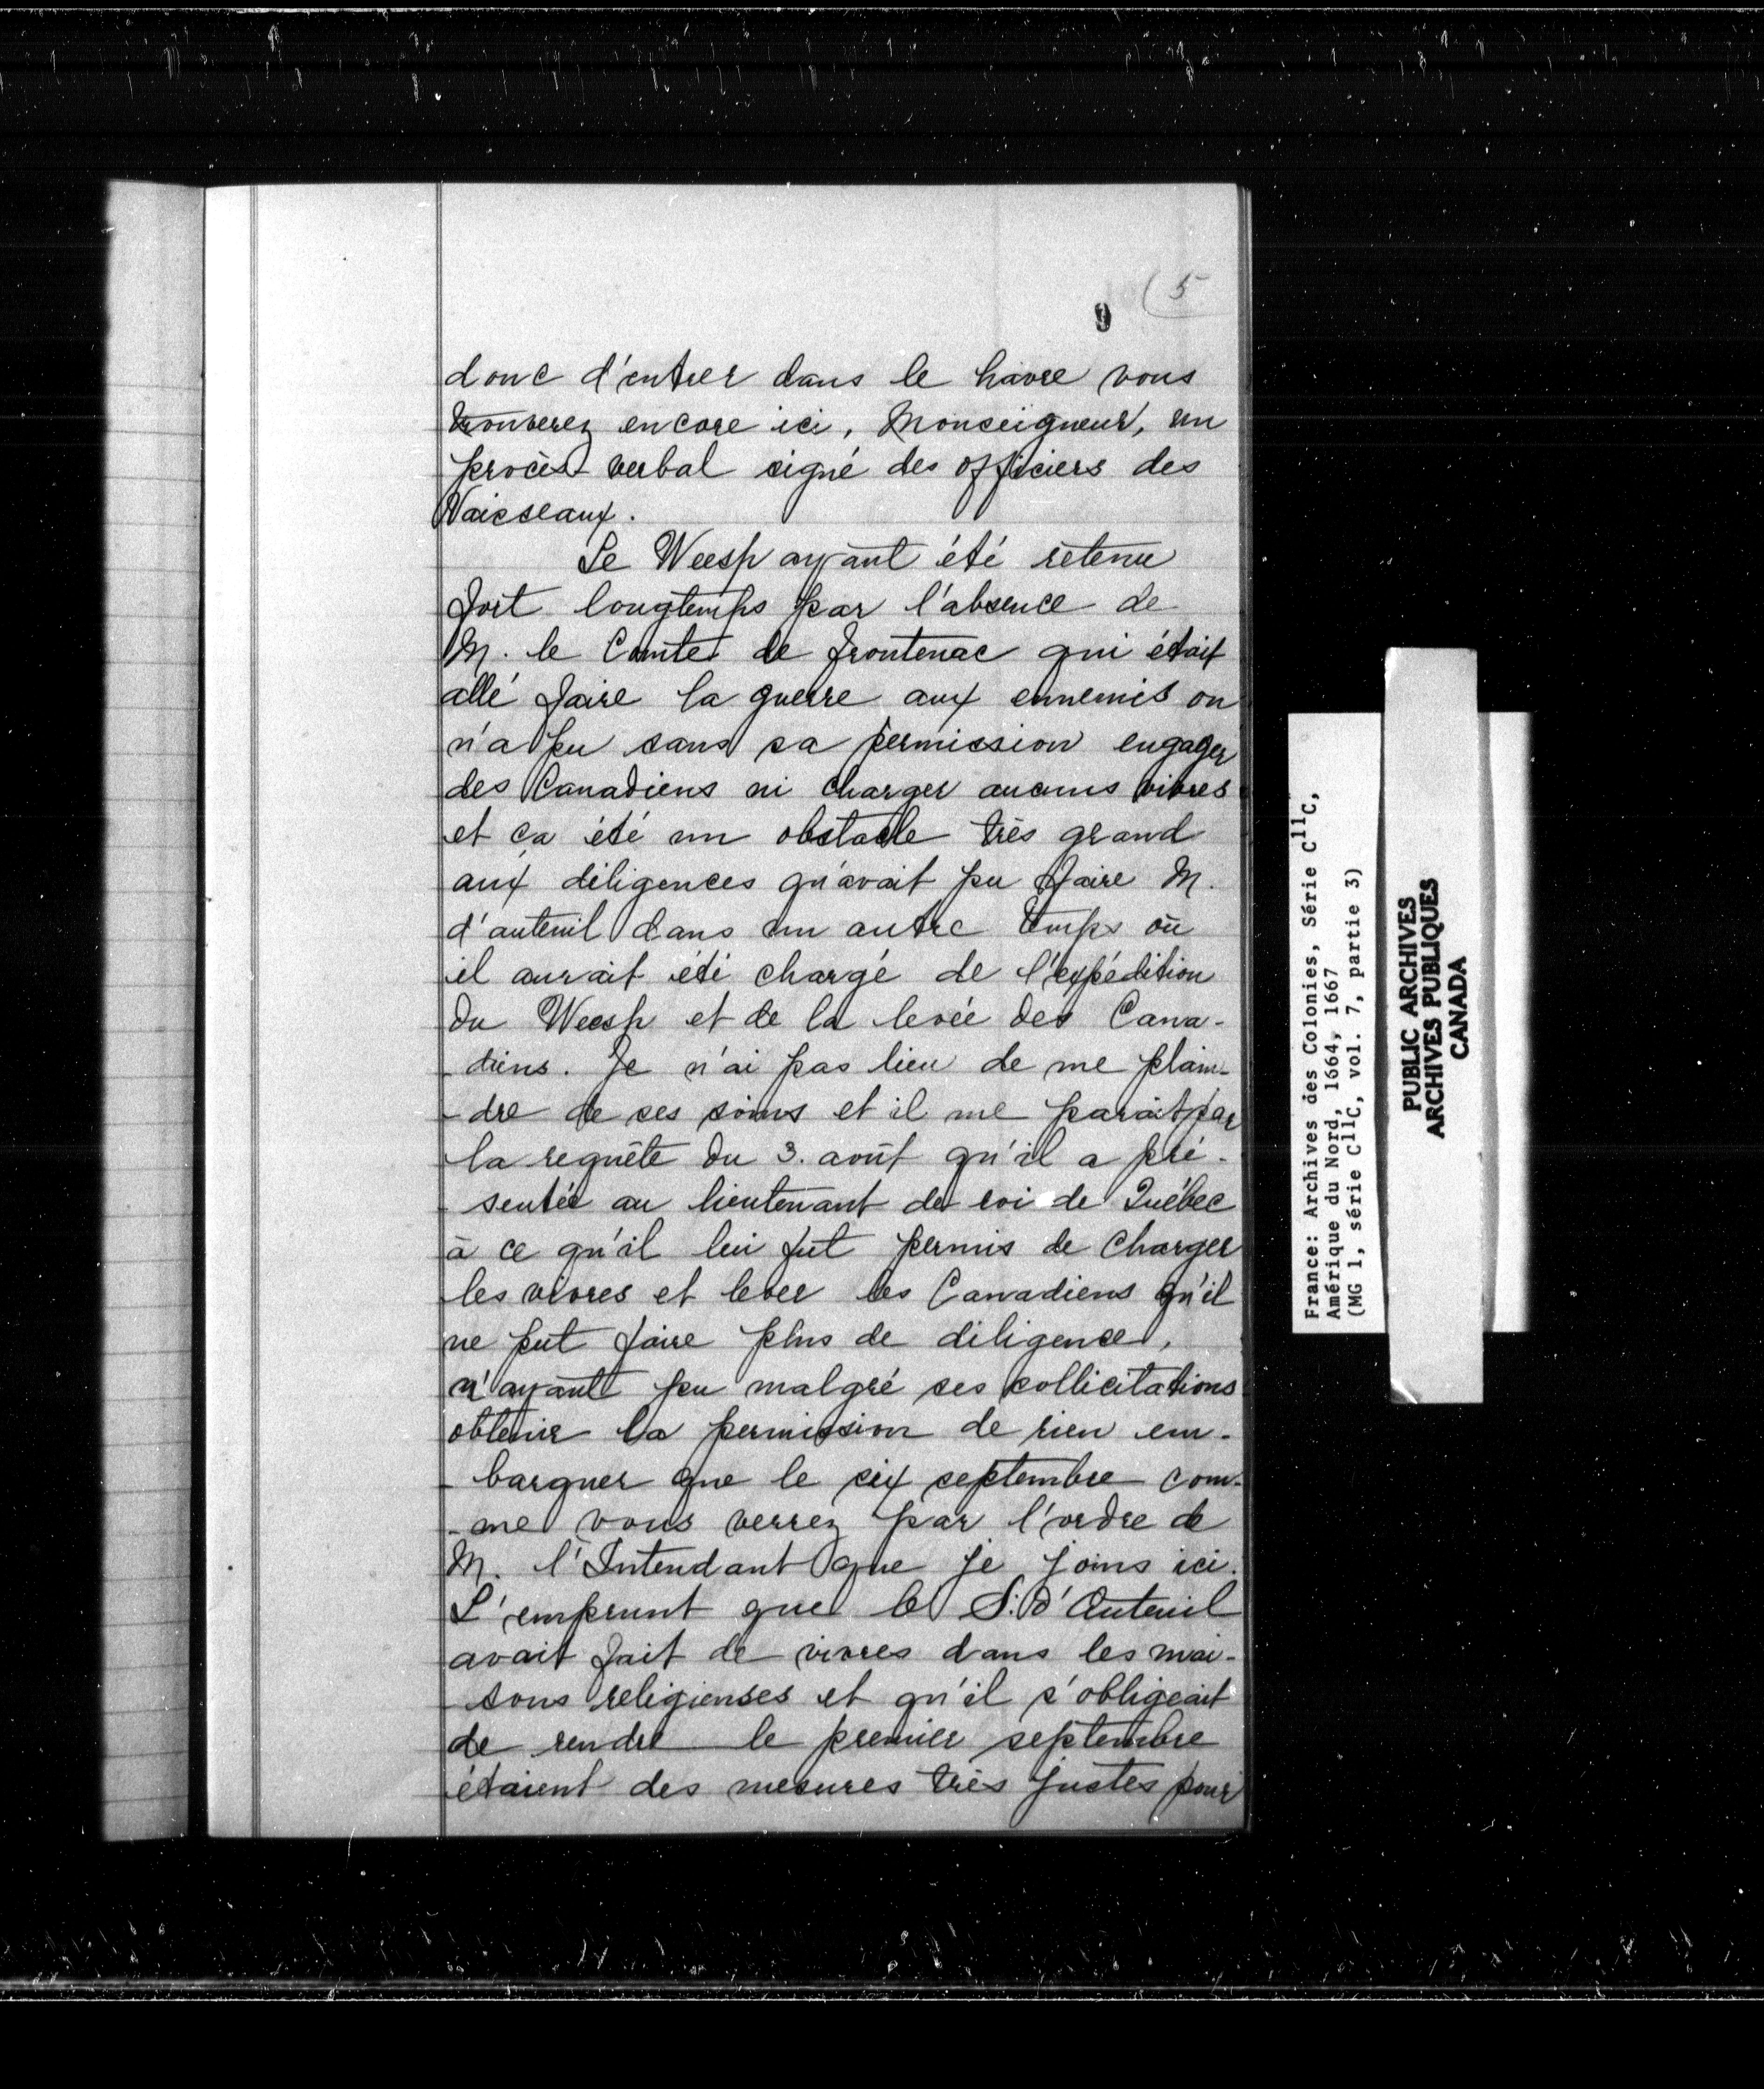 (5
9
donc d'entrer dans le hâvre vous
trouverez encore ici, Monseigneur, un
procès verbal signé des officiers des
Vaisseaux.
Le Weesp ayant été retenu
fort longtemps par l'absence de
M. le Comte de Frontenac qui était
allé faire la guerre aux ennemis on
n'a pu sans sa permission engager
des Canadiens ni charger aucuns vivres
et ça été un obstacle très grand
aux diligences qu'avait pu faire M.
d'auteuil dans un autre temps où
il aurait été chargé de l'expédition
du Weesp et de la levée des Cana-
-diens. Je n'ai pas lieu de me plain-
-dre de ses soins et il me parait par
la requête du 3. août qu'il a pré-
-sentée au lieutenant de roi de Québec
à ce qu'il lui fut permis de charger
les vivres et lever les Canadiens qu'il
ne put faire plus de diligence,
n'ayant pu malgré ses sollicitations
obtenir la permission de rien em-
-barquer que le six septembre com-
-me vous verrez par l'ordre de
M. l'Intendant que je joins ici.
L'emprunt que le S. d'Auteuil
avait fait de vivres dans les mai-
-sons religieuses et qu'il s'obligeait
de rendre le premier septembre
étaient des mesures très justes pour
France: Archives des Colonies, Série C11C,
Amérique du Nord, 1664, 1667
(MG 1, série C11C, vol. 7, partie 3)
PUBLIC ARCHIVES
ARCHIVES PUBLIQUES
CANADA